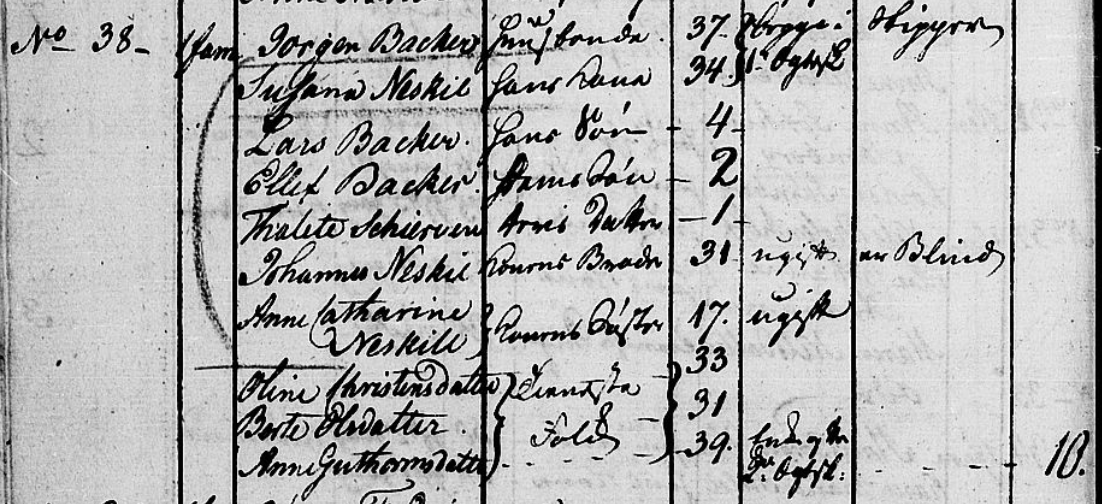 No 38- 1 fam Jørgen Backer Huusbonde. 37. Begge i Skipper
Susana Neskil Hans Kone 34. 1te Egtesk.
Lars Backer. Hans Søn - 4 -
Ellef Backer. Hans Søn - 2
Thalete Schierven Hans Datter - 1 -
Johannes Neskil Konens Broder 31 ugift er Blind
Anne Catharine Konens Søster 17. ugift
Neskill
33
Oline Christensdatter Tieneste 31
Berte Olsdatter. Folk
Anne Guthormsdatter 39. Enke efter
2. Egtesk: 10.